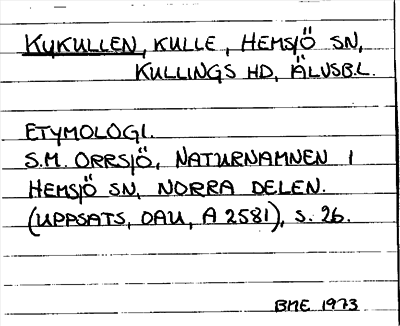 KUKULLEN, KULLE, HEMSJÖ SN,
KULLINGS HD, ÄLVSB.L.
ETYMOLOGI.
S.M. ORRSJÖ, NATURNAMNEN I
HEMSJÖ SN, NORRA DELEN.
(UPPSATS, OAU, A 2581), S. 26.
BME 1973